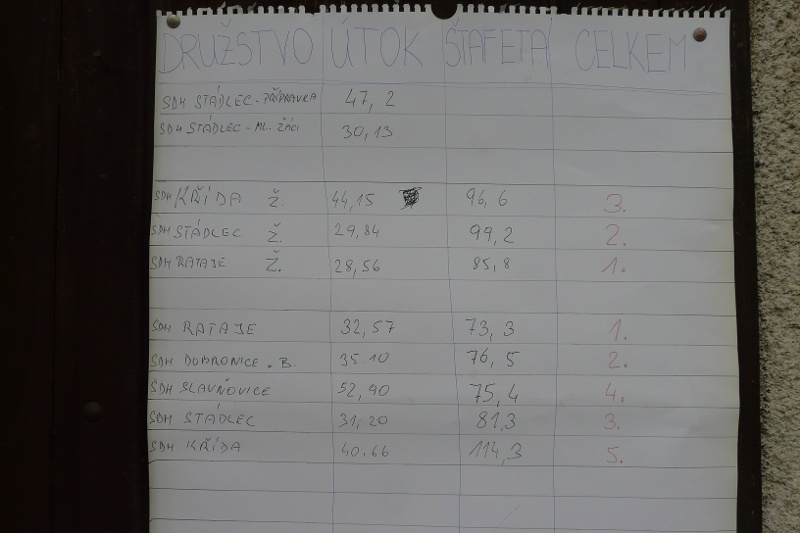 DRUŽSTVO ÚTOK ŠTAFETA CELKEM
SDH STÁDLEC - PŘÍPRAVKA 47,2
SDH STÁDLEC - ML. ŽÁCI 30,13
SDH KŘÍDA Ž. 44,15 96,6 3.
SDH STÁDLEC Ž. 29,84 99,2 2.
SDH RATAJE Ž. 28,56 85,8 1.
SDH RATAJE 32,57 73,3 1.
SDH DOBRONICE . B. 35.10 76,5 2.
SDH SLAVŇOVICE 52,90 75,4 4.
SDH STÁDLEC 31,20 81,3 3.
SDH KŘÍDA 40.66 114,3 5.